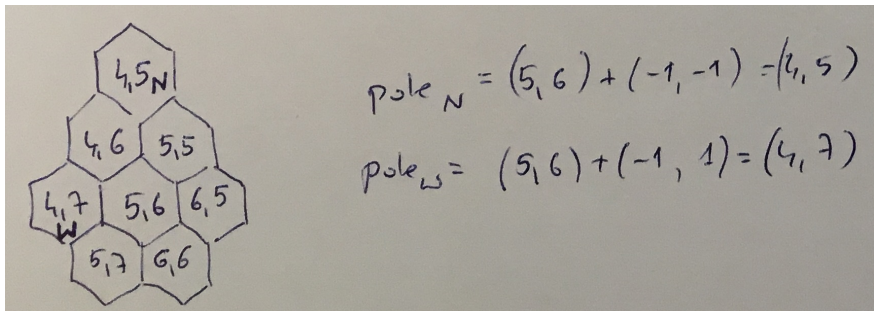 4,5N
4,6 5,5
4,7 5,6 6,5
W
5,7 6,6
pole N = (5,6) + (-1,-1) = (4,5)
pole W = (5,6) + (-1, 1) = (4,7)